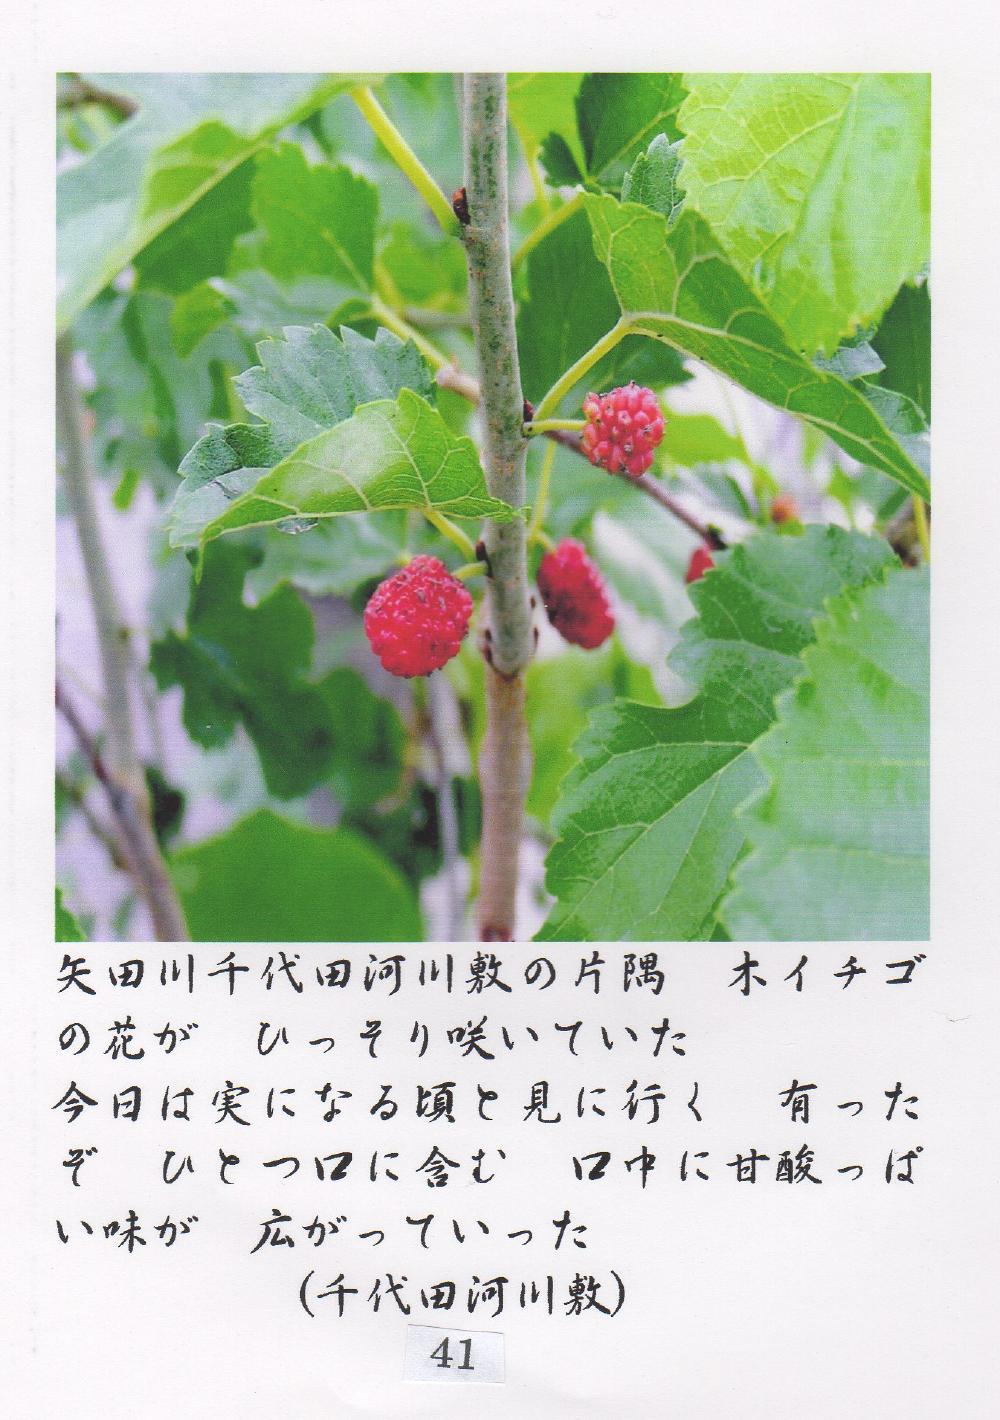 矢田川千代田河川敷の片隅　木イチゴ
の花が　ひっそり咲いていた
今日は実になる頃と見に行く　有った
ぞ　ひとつ口に含む　口中に甘酸っぱ
い味が　広がっていった
(千代田河川敷)
41